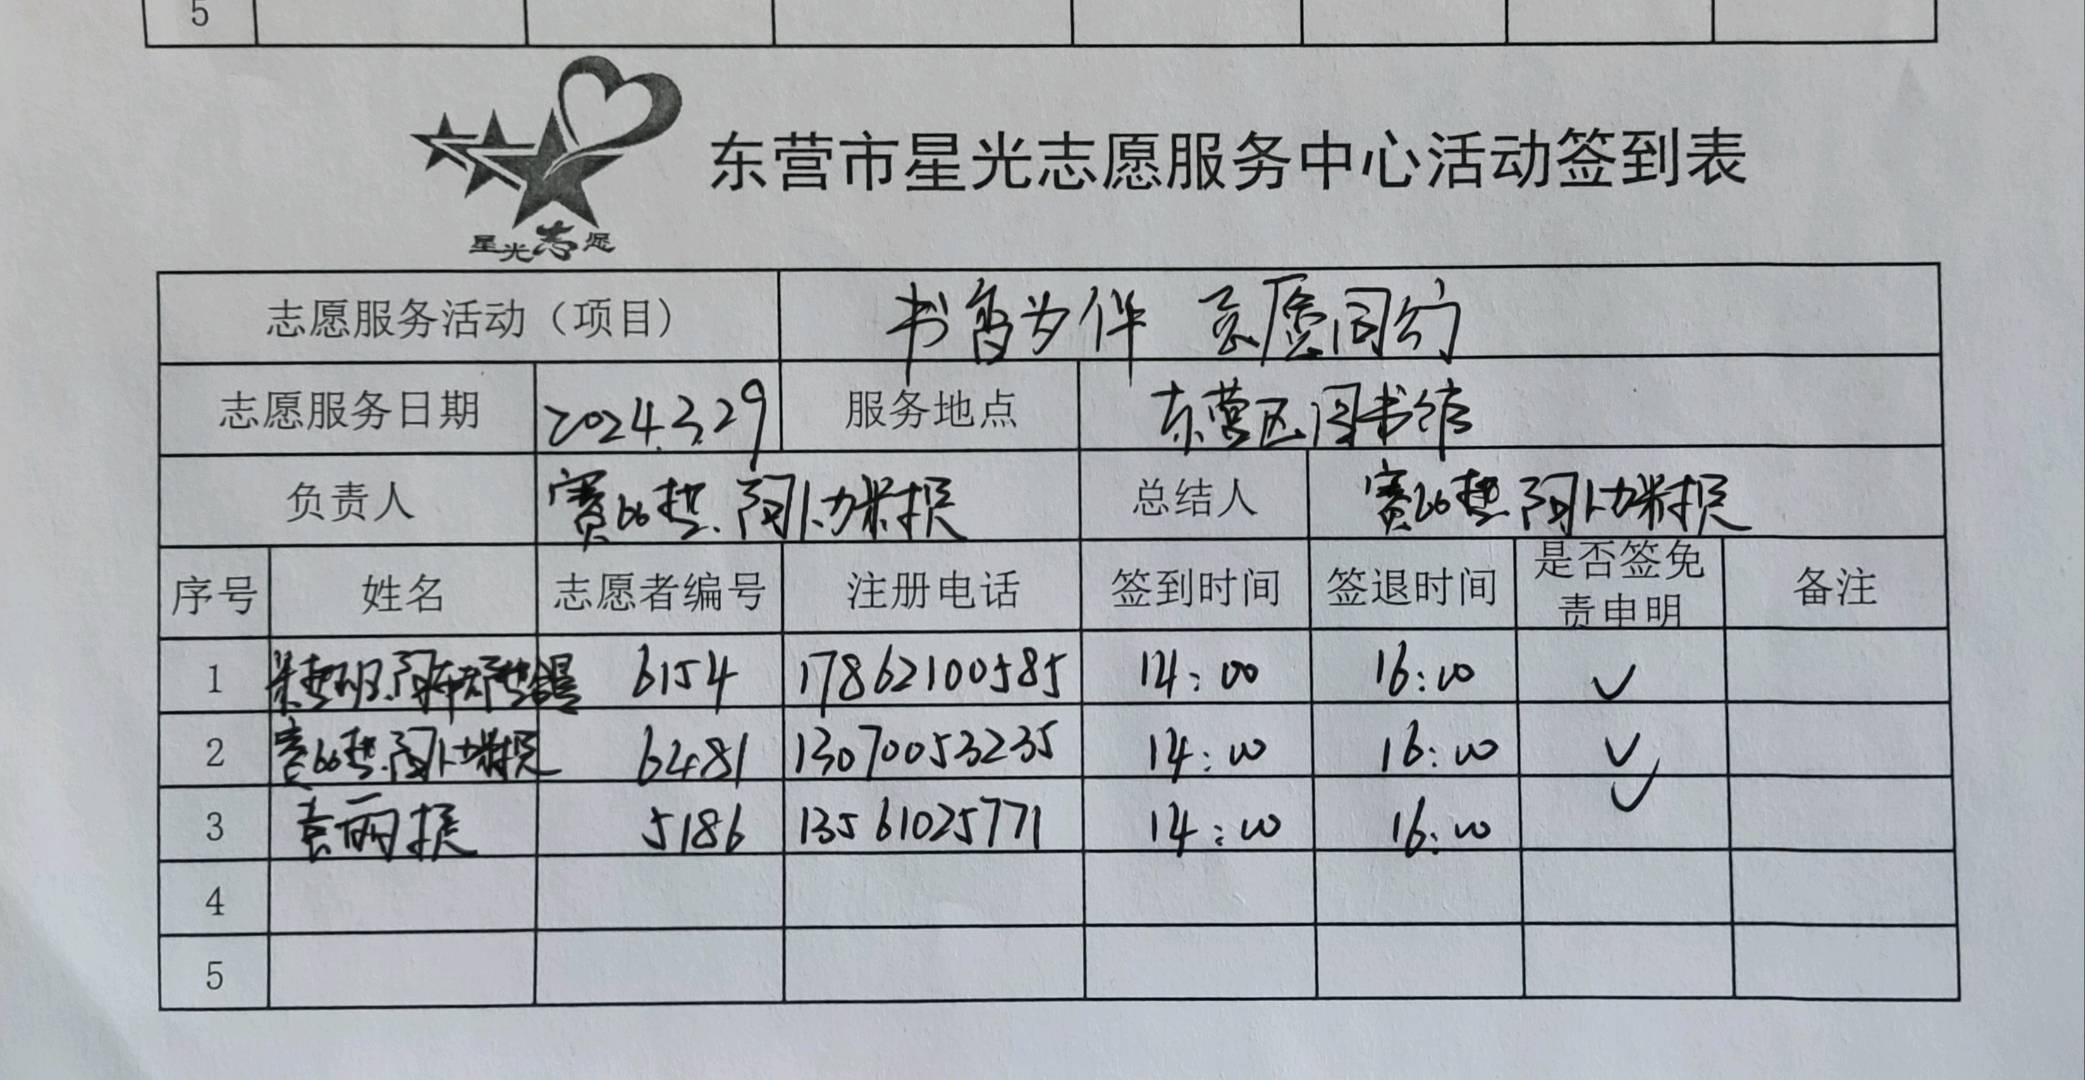 5
星光志愿
东营市星光志愿服务中心活动签到表
志愿服务活动（项目） 书香为伴 志愿同行
志愿服务日期 2024.3.29 服务地点 东营区图书馆
负责人 赛比热.阿卜力米提 总结人 赛比热.阿卜力米提
序号 姓名 志愿者编号 注册电话 签到时间 签退时间 是否签免责申明 备注
1 6154 17862100585 14:00 16:00 ✓
2 赛比热.阿卜力米提 6481 13070053235 14:00 16:00 ✓
3 5186 13561025771 14:00 16:00 ✓
4
5